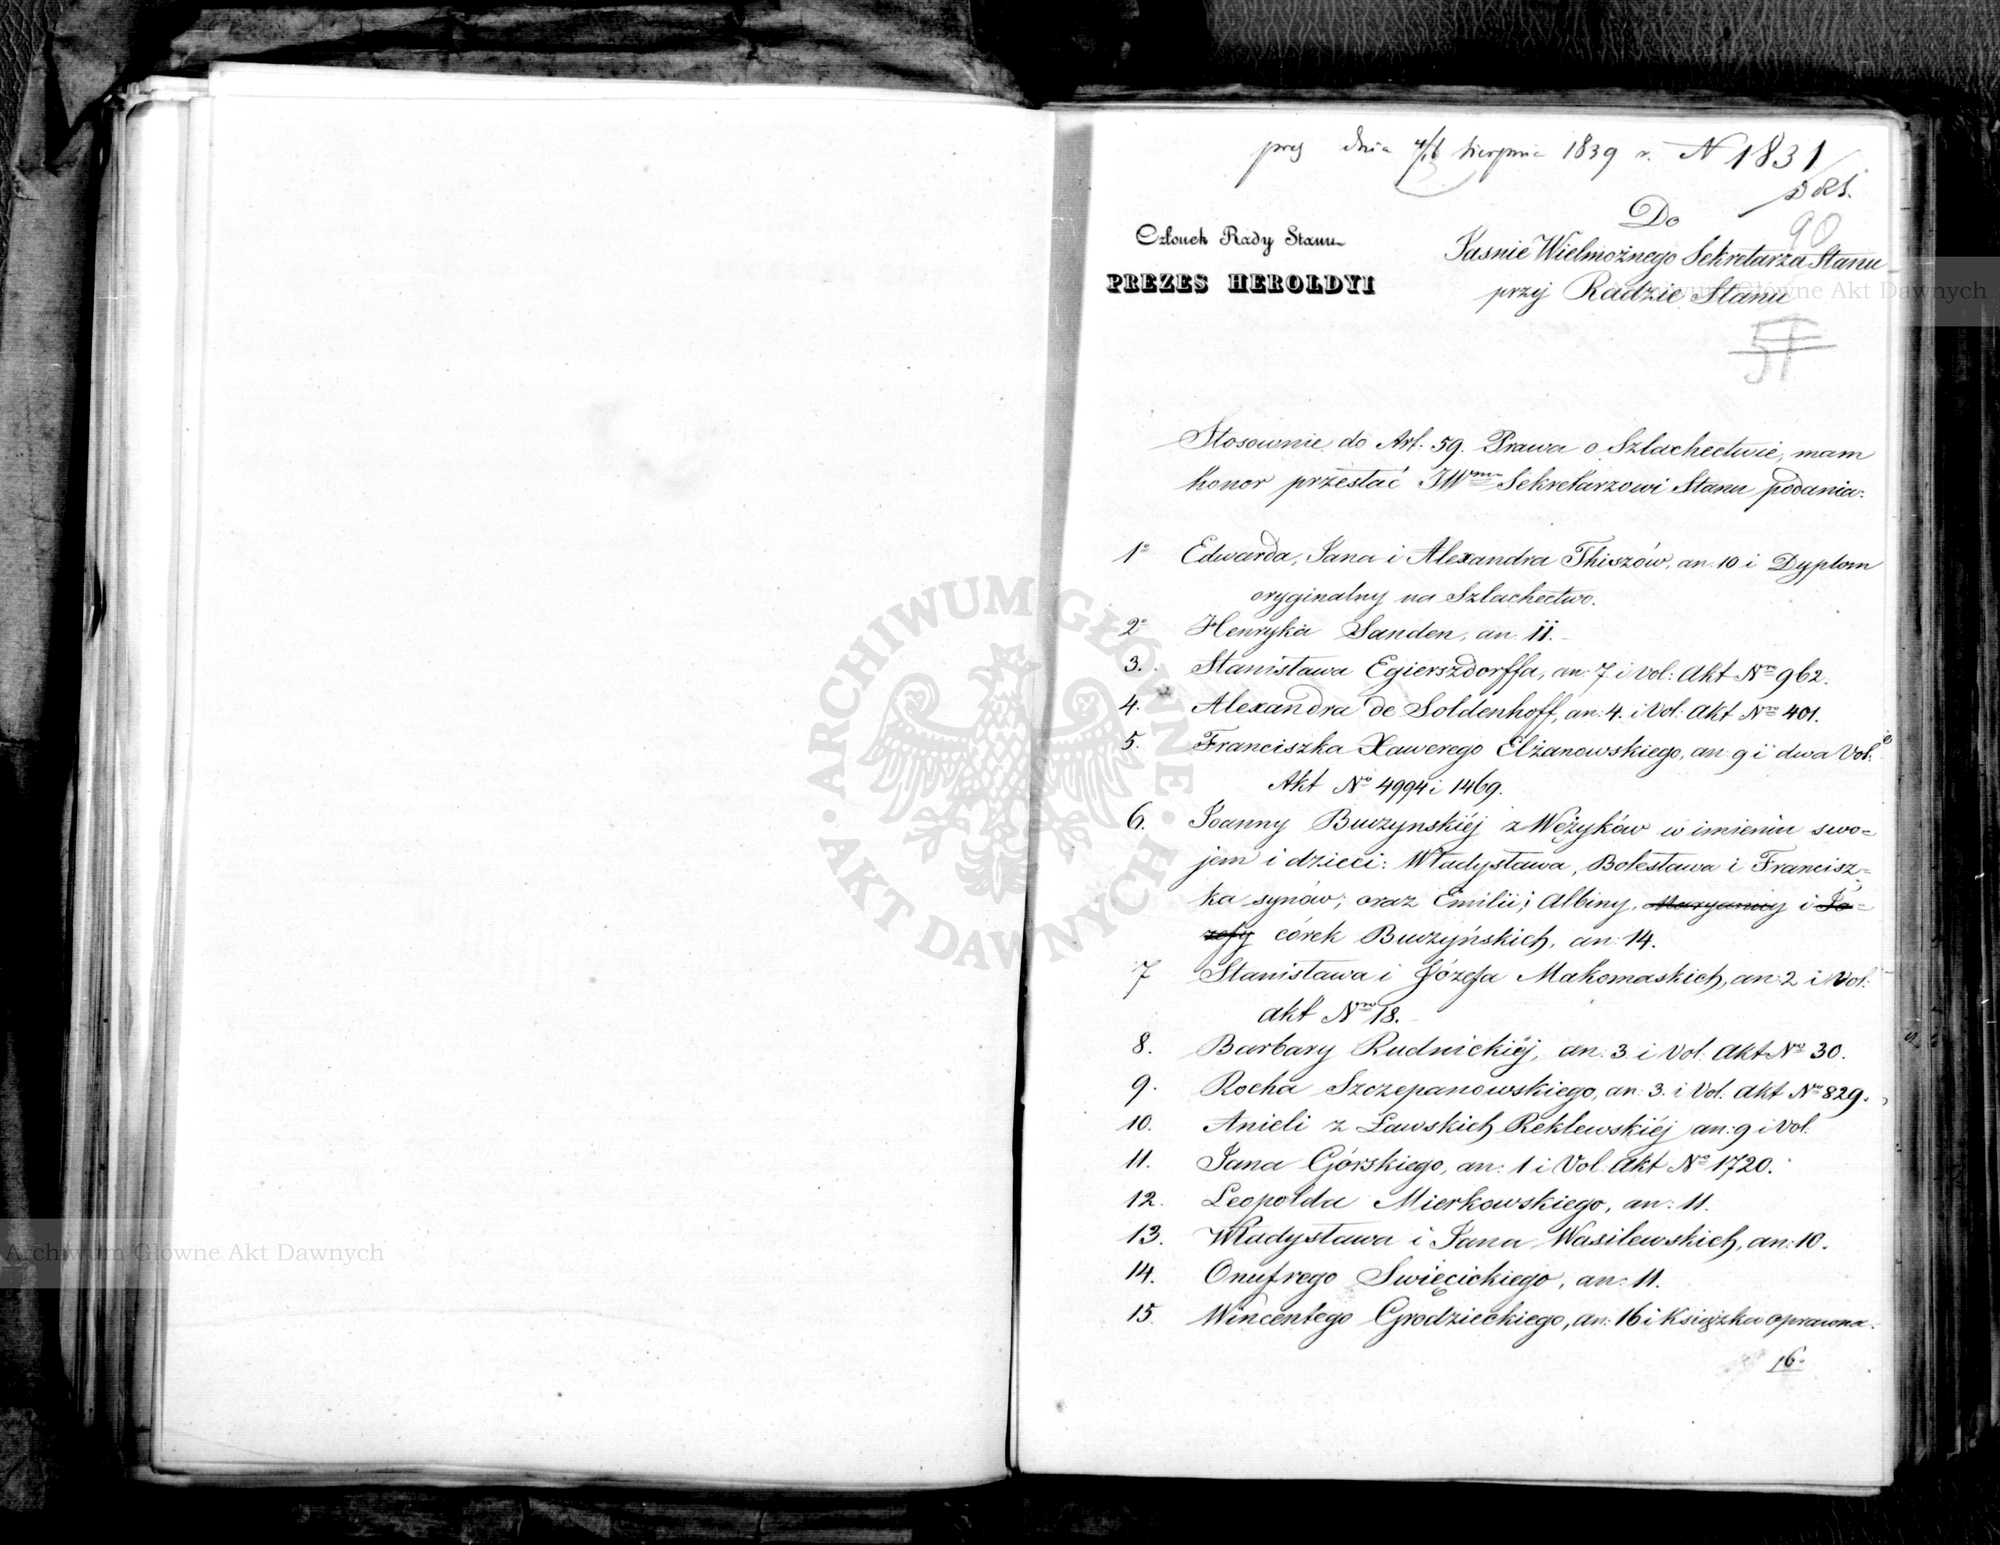 prez dnia 4/16 Sierpnia 1839 r. N 1831
DRS.
90
Członek Rady Stanu
PREZES HEROLDYI
Do
Jaśnie Wielmożnego Sekretarza Stanu
przy Radzie Stanu
Archiwum Główne Akt Dawnych
Stosownie do Art. 59. Prawa o Szlachectwie, mam
honor przesłać JWmu Sekretarzowi Stanu podania:
1o Edwarda, Jana i Alexandra Thiszów, an: 10 i Dyplom
oryginalny na Szlachectwo.
2o Henryka Sanden, an: 11.
3. Stanisława Egierszdorffa, an: 7 i vol: Akt Nro 962.
4. Alexandra de Soldenhoff, an: 4. i Vol: Akt Nro 401.
5. Franciszka Xawerego Elżanowskiego, an: 9 i dwa Vol:
Akt No 4994 i 1469.
6. Joanny Buczynskiéj z Wężyków w imieniu swo=
jem i dzieci: Władysława, Bolesława i Francisz=
ka synów; oraz Emilii, i Albiny, Maryanny i Jó=
zefy córek Buczyńskich, an: 14.
7 Stanisława i Józefa Makomaskich, an: 2 i Vol:
akt Nro 18.
8. Barbary Rudnickiéj, an: 3. i Vol: Akt No 30.
9. Rocha Szczepanowskiego, an: 3. i Vol. Akt No 829.
10. Anieli z Ławskich Reklewskiéj an: 9 i Vol:
11. Jana Górskiego, an: 1 i Vol: Akt No 1720.
12. Leopolda Mierkowskiego, an: 11.
13. Władysława i Jana Wasilewskich, an: 10.
14. Onufrego Swięcickiego, an: 11.
15. Wincentego Grodzieckiego, an: 16 i Książka oprawna.
16.
ARCHIWUM GŁÓWNE · AKT DAWNYCH ·
Archiwum Główne Akt Dawnych